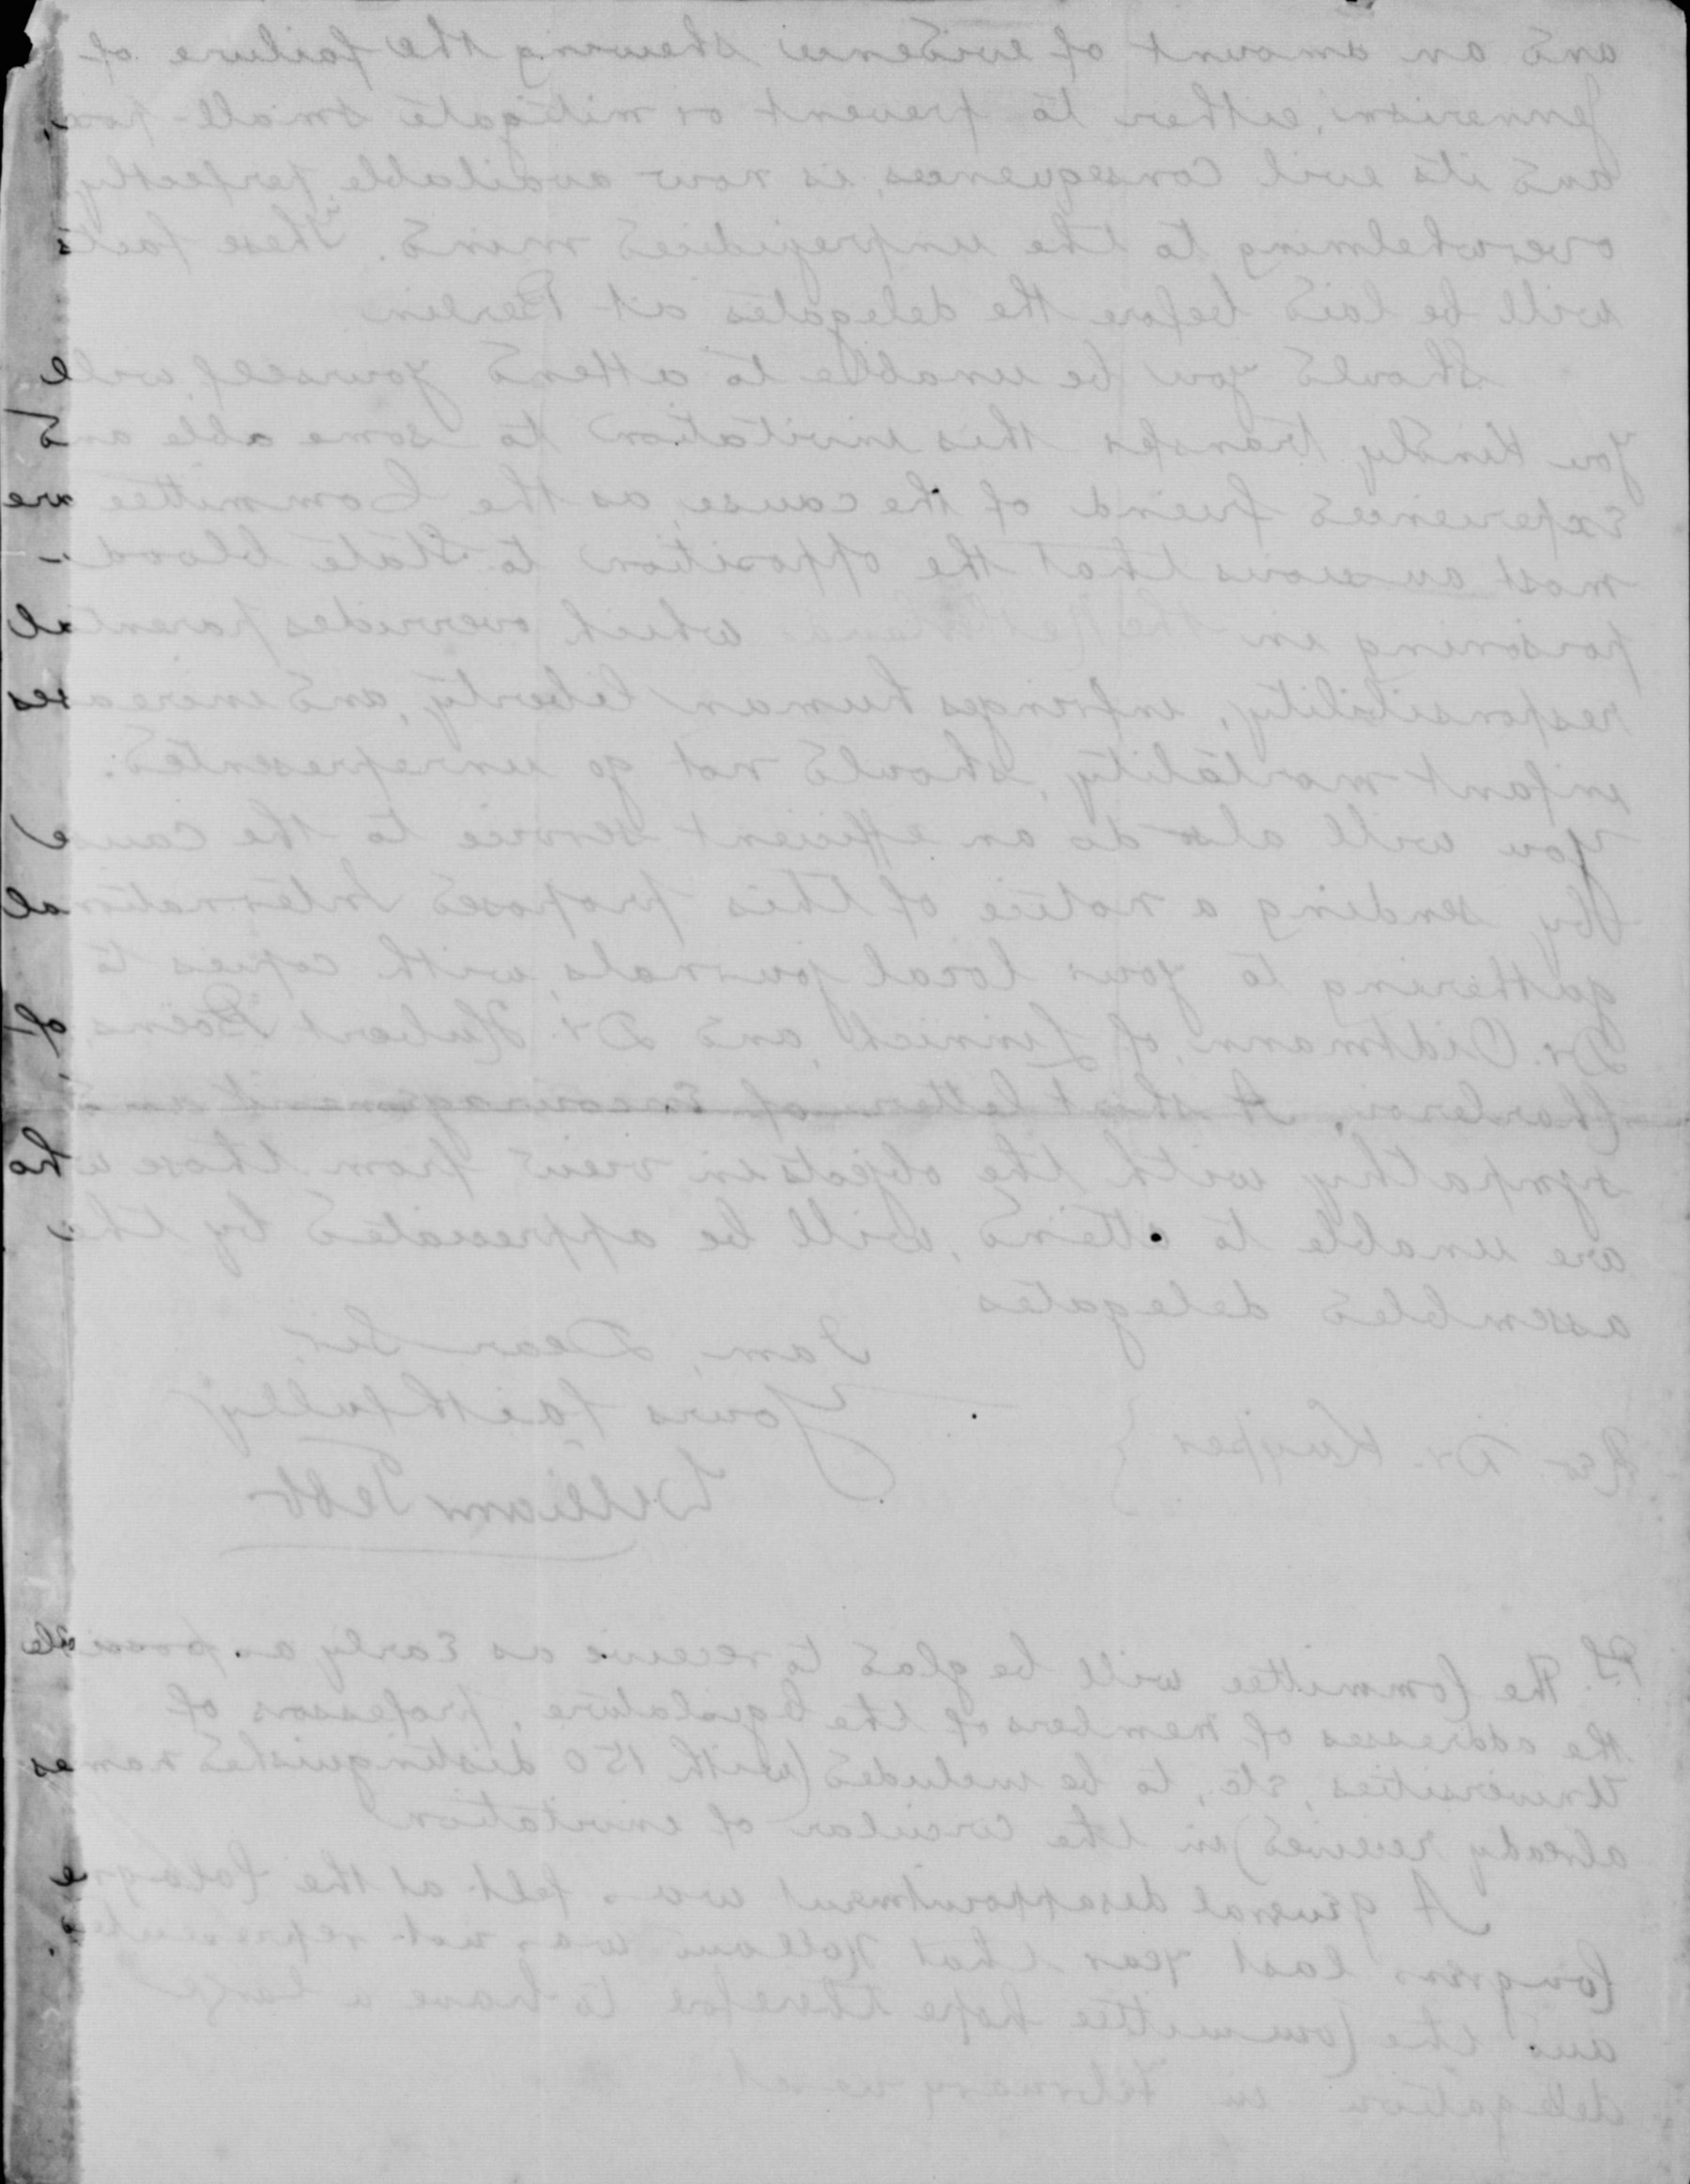 and an amount of evidence shewing the failure of
Jennerism, either to prevent or mitigate small-pox
and its evil consequences, is now available, perfectly
overwhelming to the unprejudiced mind. These facts
will be laid before the delegates at Berlin
Should you be unable to attend yourself, will
you kindly transfer this invitation to some able and
experienced friend of the cause, as the Committee are
most anxious that the opposition to State blood-
poisoning in the Netherlands which overrides parental
responsibility, infringes human liberty, and increases
infant mortality, should not go unrepresented.
You will also do an efficient service to the cause
by sending a notice of this proposed International
gathering to your local journals, with copies to
Dr. Oidtmann, of Linnich, and Dr. Hubert Boëns,
Charleroi. A short letter of encouragement and
sympathy with the objects in view from those who
are unable to attend, will be appreciated by the
assembled delegates
I am, Dear Sir,
Yours faithfully
William Tebb
Rev. Dr. Kuyper
P.S. The Committee will be glad to receive as early as possible
the addresses of members of the legislature, professors of
Universities, etc, to be included (with 150 distinguished names
already received) in the circular of invitation
A general disappointment was felt at the Cologne
Congress last year that Holland was not represented
and the Committee hope therefore to have a large
delegation in February next